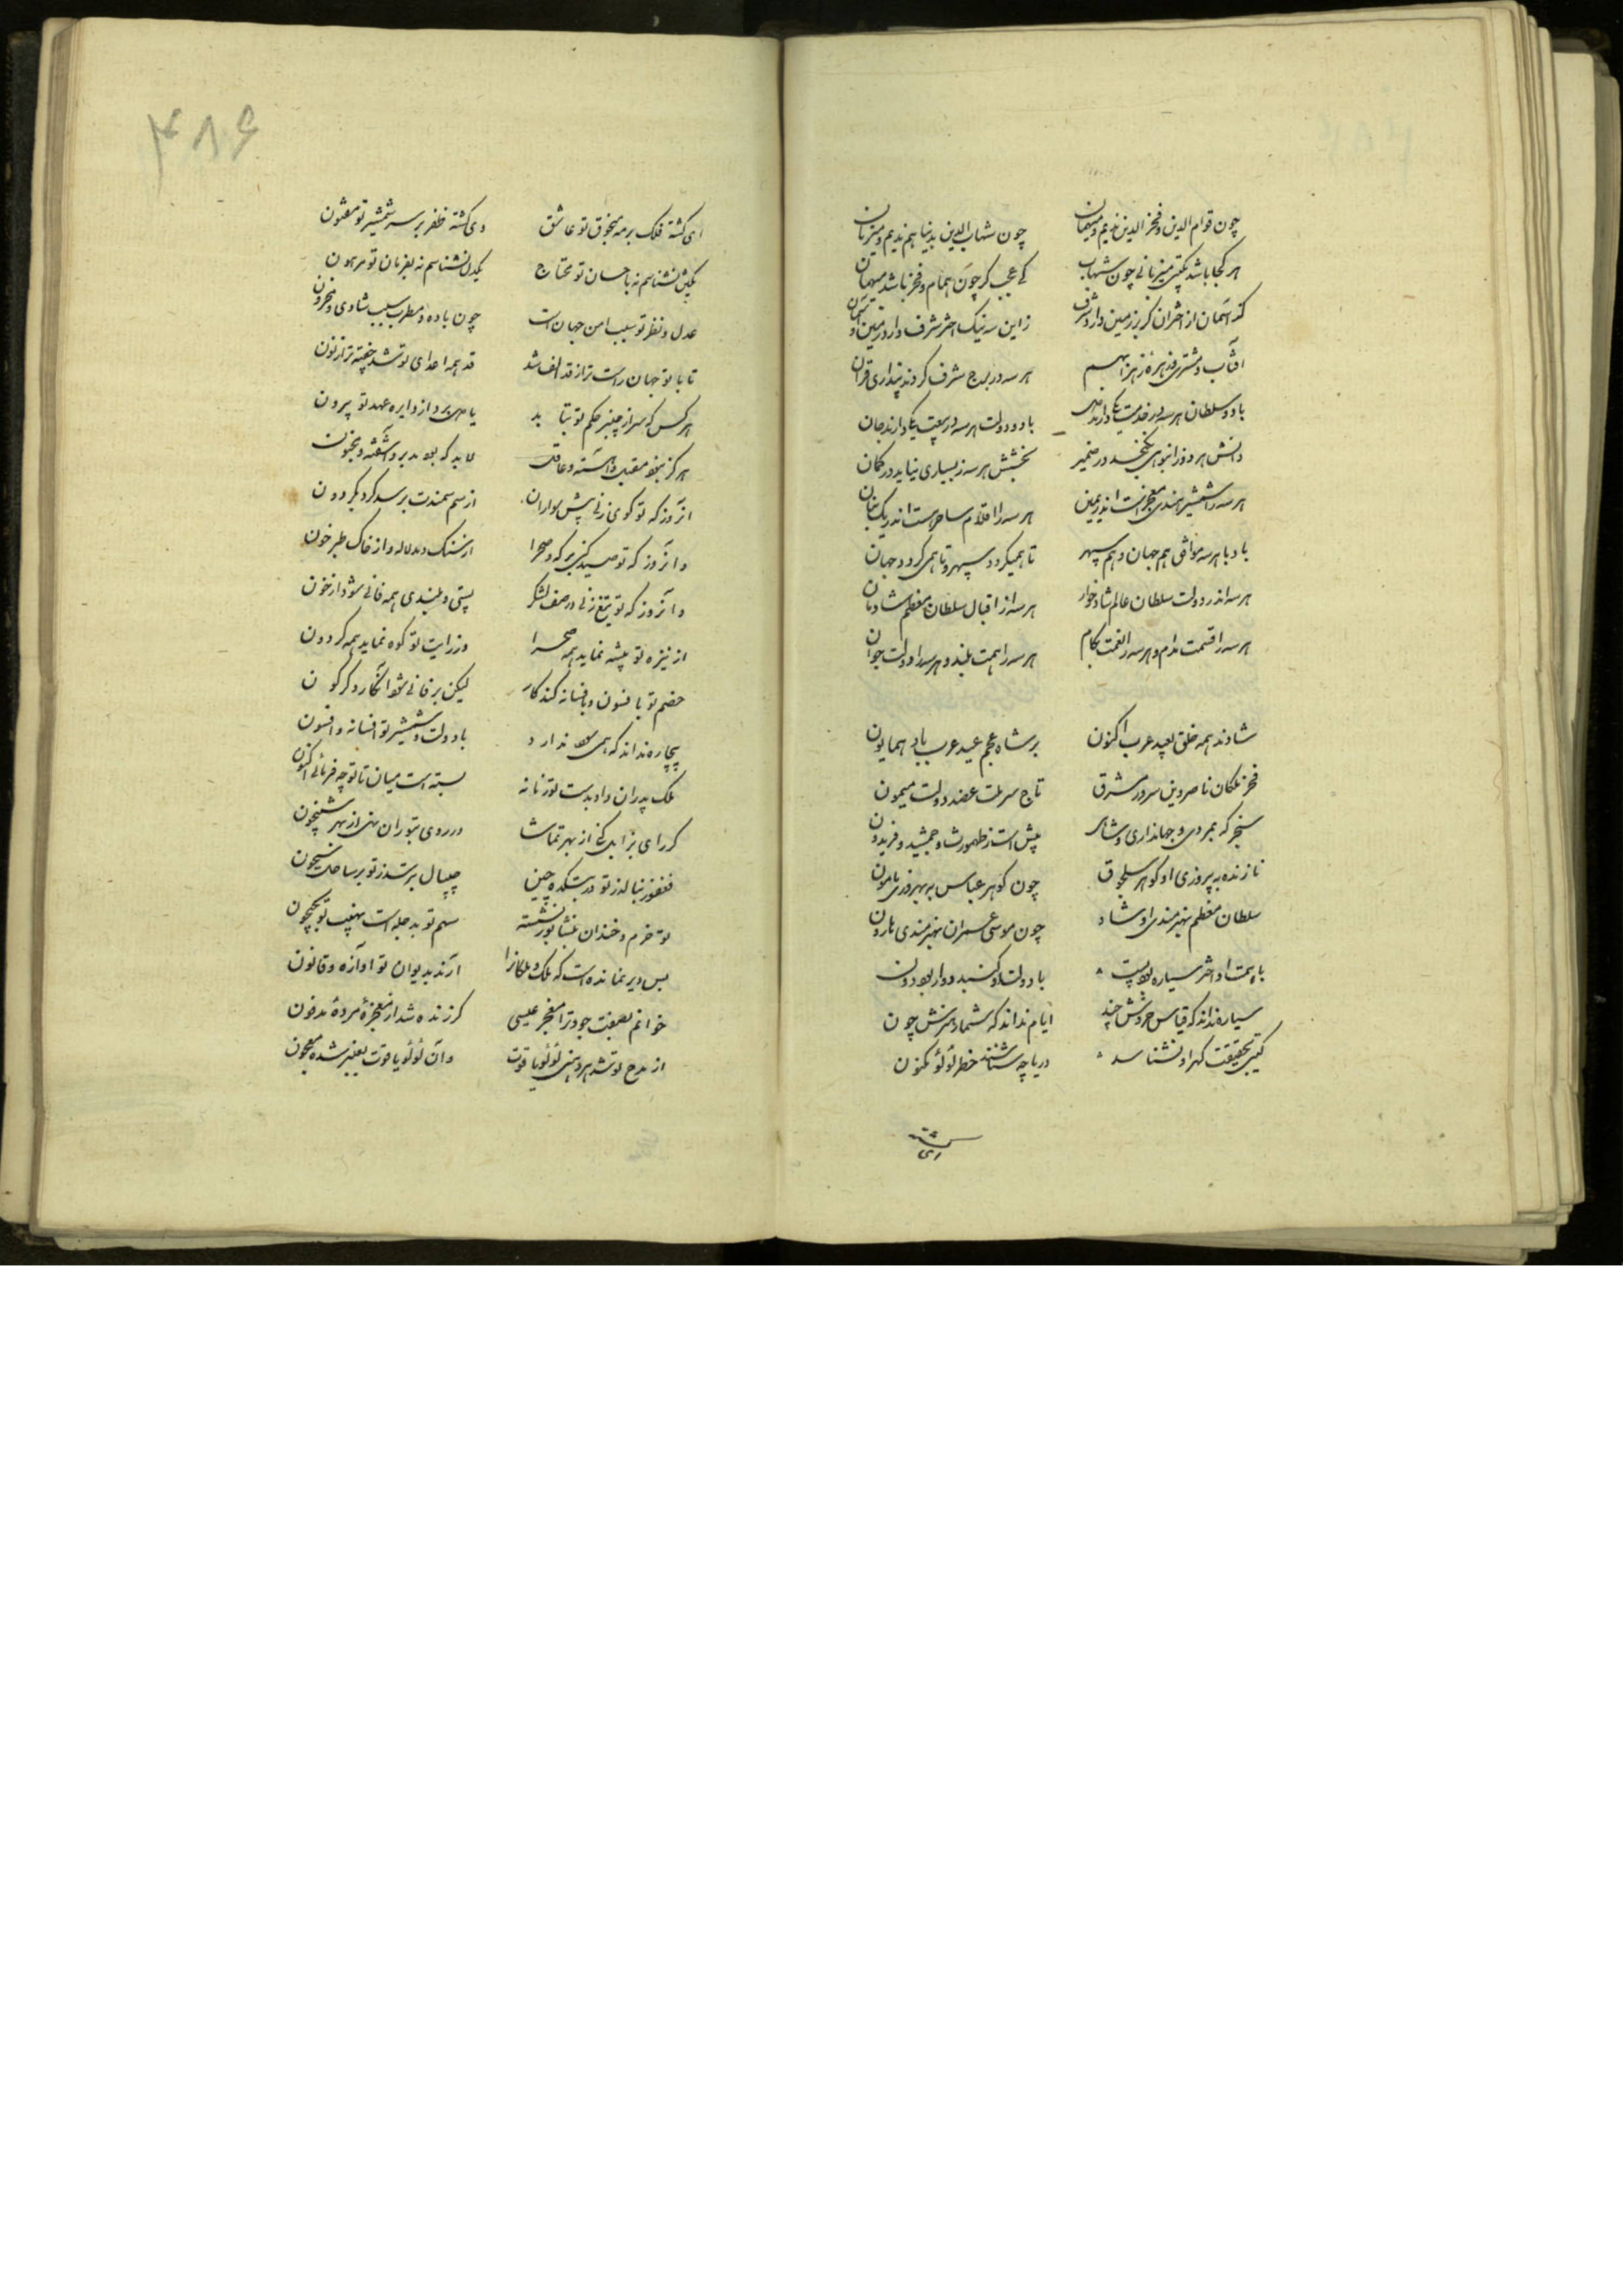 چون قوام الدین و فخر الدین ندیم و میهمان چون شهاب الدین بدنیا هم ندیم و میزبان
هر کجا باشد بگیتی میزبانی چون شهاب کی عجب گر چون همام و فخر باشد میهمان
کند آسمان از اختران گر بر زمین دارد شرف زین سه نیک اختر شرف دارد زمین و آسمان
آفتاب و مشتری و زهره زهرا بهم هر سه در برج شرف کردند پنداری قران
باد و سلطان هر سه در خدمت یکی دارند باد و دولت هر سه در بیعت یکی دارند جان
دانش هر سه ز انبوهی نگنجد در ضمیر بخشش هر سه ز بسیاری نیاید در گمان
هر سه را شمشیر هندی معجز است اندر یمین هر سه را اقلام ساحر است اندر بنان
باد با هر سه موافق هم جهان و هم سپهر تا همیگردد سپهر و تا همی گردد جهان
هر سه اندر دولت سلطان عالم شادخوار هر سه از اقبال سلطان معظم شادمان
هر سه را قسمت مدام و هر سه را نعمت بکام هر سه را همت بلند و هر سه را دولت جوان
شادند همه خلق بعید عرب اکنون بر شاه عجم عید عرب باد همایون
فخر ملکان ناصر دین سرور مشرق تاج سر ملت عضد دولت میمون
سنجر که بمردی و جهانداری و شاهی پیش است ز طهمورث و جمشید و فریدون
نازنده به پیروزی او گوهر سلجوق چون گوهر عباس به بهروزی مامون
سلطان معظم بهنرمندی او شاد چون موسی عمران بهنرمندی هارون
با همت او اختر سیاره بود پست با دولت او گنبد دوار بود دون
سیاره نداند که قیاس خردش چند ایام نداند که شمار هنرش چون
گیتی بحقیقت گهر او نشناسد دریا چه شناسد خطر لؤلؤ مکنون
ای گشته فلک بر مه منجوق تو عاشق وی گشته ظفر بر سر شمشیر تو مفتون
یکتن نشناسم نه باحسان تو محتاج یکدل نشناسم نه بفرمان تو مرهون
عدل و نظر تو سبب امن جهان است چون باده و مطرب سبب شادی محزون
تا با تو جهان راست تر از قد الف شد قد همه اعدای تو شد چفته تر از نون
هر کس که سر از چنبر حکم تو بتابد یا پی برد از دایره عهد تو بیرون
هرگز نبود مقبل و آهسته و عاقل شاید که بود مدبر و آشفته و مجنون
آنروز که تو گوی زنی پیش سواران از سم سمندت برسد گرد بگردون
و آنروز که تو صید کنی بر که و صحرا از سنگ دمد لاله و از خاک طبرخون
و آنروز که تو تیغ زنی در صف لشکر پستی و بلندی همه فانی شود از خون
از نیزه تو بیشه نماید همه صحرا وز رایت تو کوه نماید همه گردون
خصم تو بافسون و بافسانه کند کار لیکن بر فانی شود انکار دگرگون
بیچاره نداند که همی سود ندارد با دولت و شمشیر تو افسانه و افسون
ملک پدران داد بدست تو زمانه بسته است میان تا تو چه فرمائی اکنون
گر رای بزابل کنی از بهر تماشا ور روی بتوران نهی از بهر شبیخون
فغفور بنالد ز تو در بتکده چین جیپال بترسد ز تو بر ساحل سیحون
تو خرم و خندان بنشابور نشسته سهم تو بدجله است نهیب تو بجیحون
بس دیر نمانده است که ملک و ملکانرا آرند بدیوان تو آوازه و قانون
خوانم بصفت جود ترا معجز عیسی گر زنده شد از معجزه مرده مدفون
از مدح تو شد هر دهنی لؤلؤ یاقوت وان لؤلؤ یاقوت بعنبر شده معجون